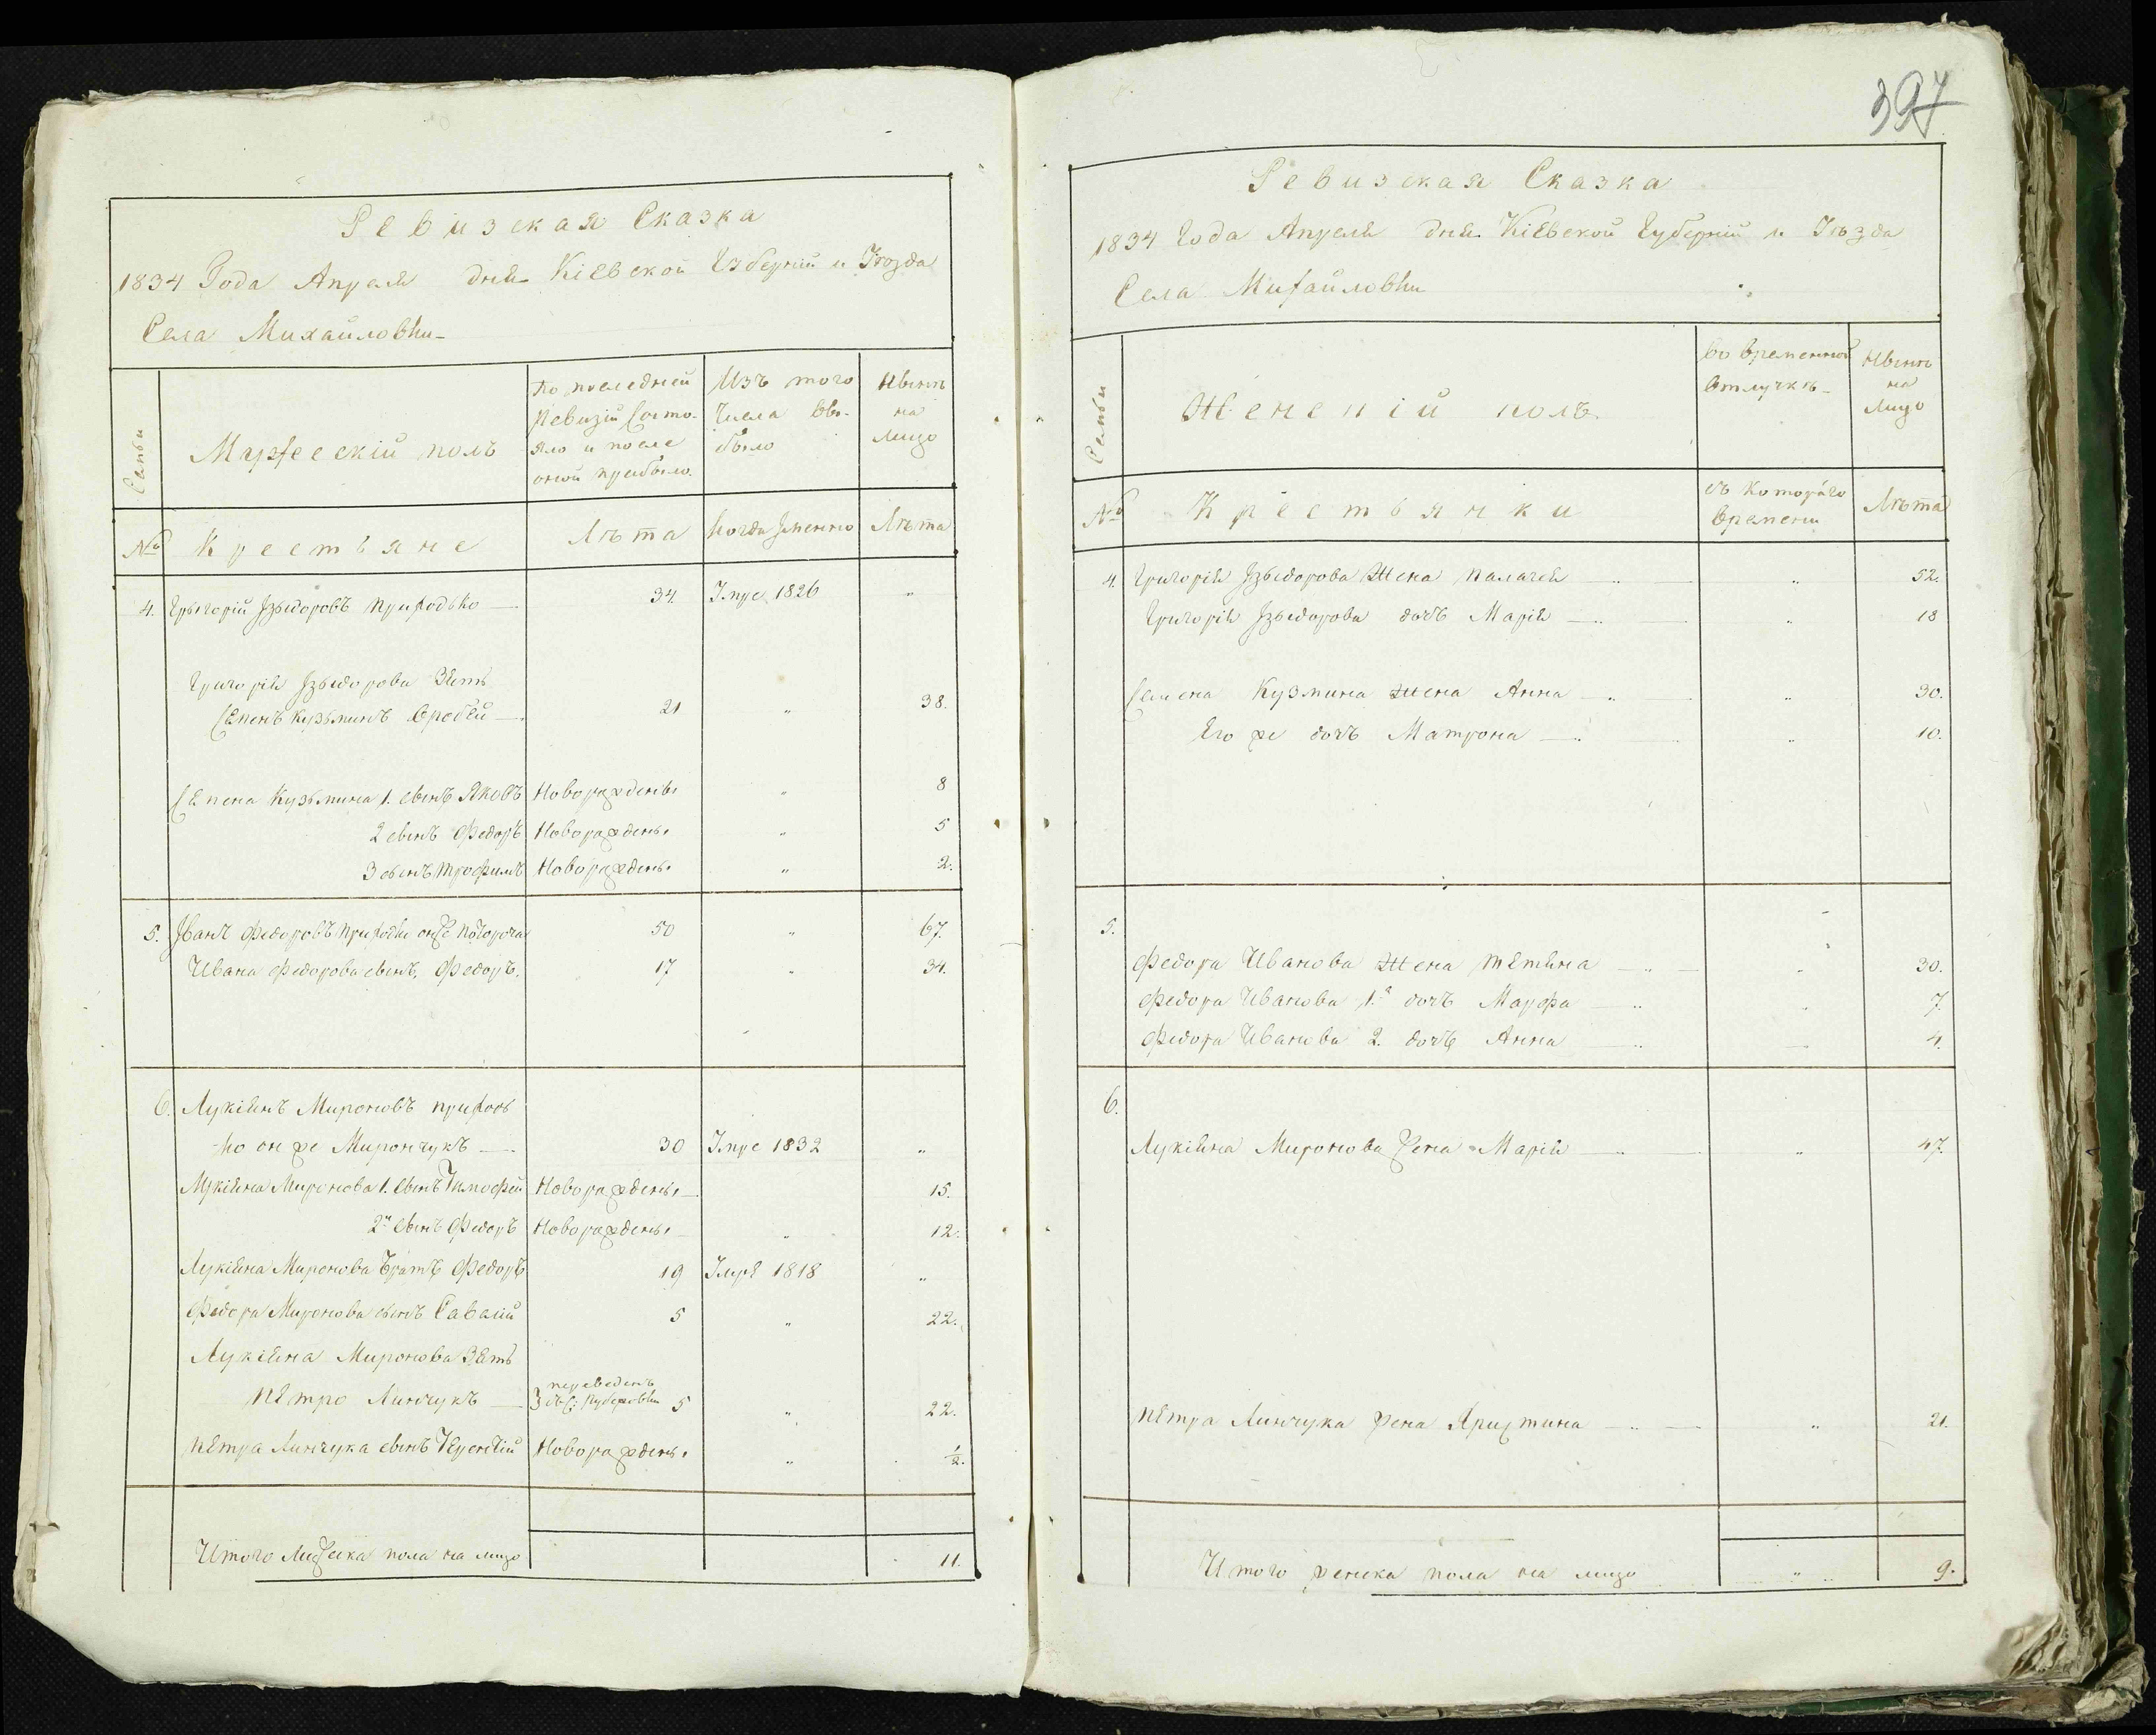 Ревизская Сказка
1834 Года Апреля дня Кіевской Губерній и Уезда
Села Михайловки
Семьи
Мужеескій полъ
по последней Ревизій состояло и после оной прибыло.
Изъ того числа выбыло
Нынѣ на лицо
№ Крестьяне
Лѣта
когда Іменно
Лѣта
4. Грыгорій Ізыдоровъ приходько 34. Умре 1826 "
Григорія Ізыдорова Зять
Семенъ Кузьминъ 21 " 38.
Семена Кузьмина 1. сынъ Яковъ Новорожденны " 8
2 сынъ Федоръ Новорожденны " 5
3 сынъ Трофимъ Новорожденны " 2.
5. Іванъ Федоровъ 50 " 67.
Ивана Федорова сынъ Федоръ. 17 " 34.
6. Лукіянъ Мироновъ приходь
ко он же Мирончукъ 30 Умре 1832 "
Лукіяна Миронова 1. сынъ Тимофей Новорожденны 15.
2й сынъ Федоръ Новорожденны " 12.
Лукіяна Миронова братъ Федоръ 19 Умре 1818 "
Федора Миронова сынъ Савелій 5 " 22.
Лукіяна Миронова Зять
переведенъ
Петро Линчукъ 5 " 22.
Петра Линчука сынъ Терентій Новорожденны " 1/2.
Итого Мужеска пола на лицо 11.
397
Ревизская Сказка
1834 Года Апреля дня Кіевской Губерній и Уѣзда
Села Михайловки
Семьи
Женскій полъ.
Во временной отлучкѣ
Нынѣ на лицо
№ Крестьянки
съ котораго времени
Лѣта
4. Григорія Ізыдорова Жена Палагея " 52.
Григорія Ізыдорова дочъ Марія " 18
Семена Кузмина жена Анна " 30.
Его же дочъ Матрона " 10.
5.
Федора Иванова Жена Тетяна " 30.
Федора Иванова 1.я дочъ Марфа " 7.
Федора Иванова 2. дочъ Анна 4.
6.
Лукіяна Миронова жена Марія " 47.
Петра Линчука жена Христина " 21.
Итого женска пола на лицо " 9.